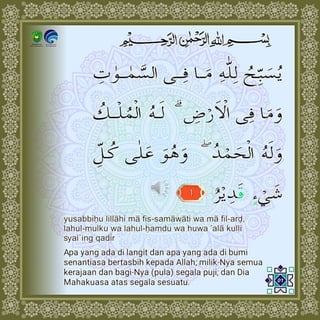 بِسْمِ اللهِ الرَّحْمٰنِ الرَّحِيْمِ
يُسَبِّحُ لِلّٰهِ مَا فِى السَّمٰوٰتِ
وَمَا فِى الْاَرْضِۚ لَهُ الْمُلْكُ
وَلَهُ الْحَمْدُۖ وَهُوَ عَلٰى كُلِّ
شَيْءٍ قَدِيْرٌ ١
yusabbiḥu lillāhi mā fis-samāwāti wa mā fil-arḍ,
lahul-mulku wa lahul-ḥamdu wa huwa ‘alā kulli
syai`ing qadīr
Apa yang ada di langit dan apa yang ada di bumi
senantiasa bertasbih kepada Allah; milik-Nya semua
kerajaan dan bagi-Nya (pula) segala puji; dan Dia
Mahakuasa atas segala sesuatu.